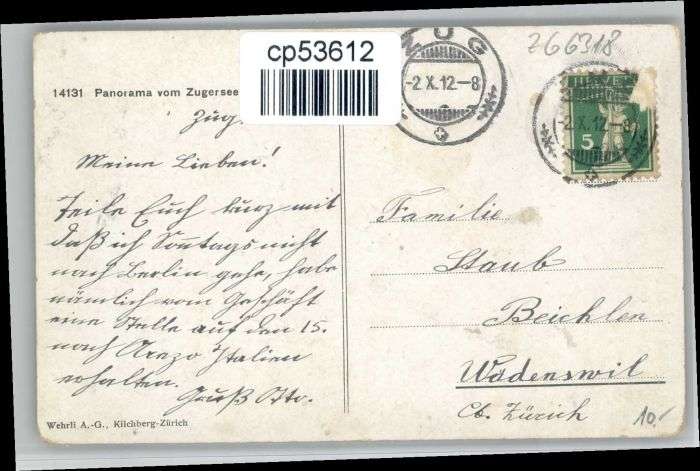 cp53612
Z66318
14131 Panorama vom Zugersee
ZUG
-2.X.12-8
HELVETIA
5
-2.X.12-8
Zug.
Meine Lieben!
Teile Euch kurz mit
daß ich Sonntags nicht
nach Berlin gehe, habe
nämlich vom Geschäft
eine Stelle auf den 15.
nach Arezo Italien
erhalten.
Gruß Otto.
Familie
Staub
Beichlen
Wädenswil
Ct. Zürich
10.-
Wehrli A.-G., Kilchberg-Zürich